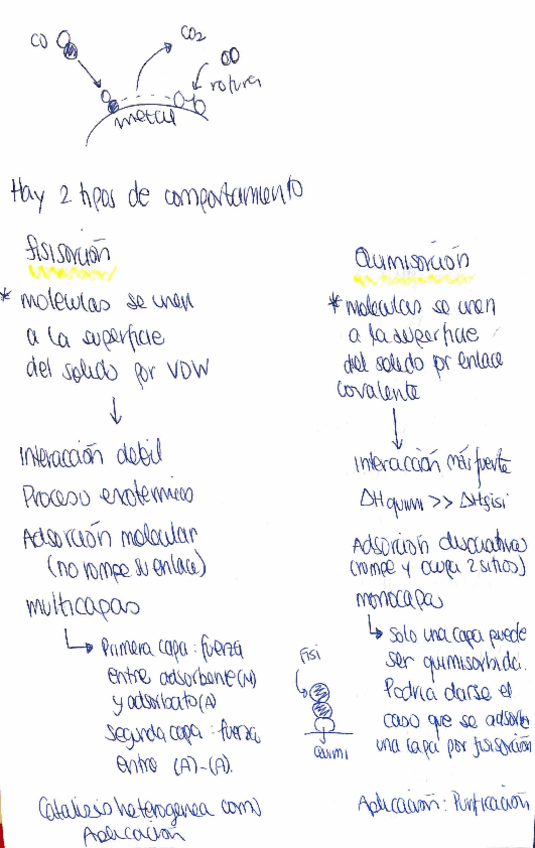 CO
CO2
rotura
metal
Hay 2 tipos de comportamiento
fisisorción
* moleculas se unen
a la superficie
del solido por VDW
Interacción debil
Proceso exotermico
Adsorción molecular
(no rompe su enlace)
multicapas
Primera capa: fuerza
entre adsorbente (M)
y adsorbato (A)
segunda capa: fuerza
entre (A)-(A).
Catalisis heterogenea como
Aplicación
Quimisorción
* moleculas se unen
a la superficie
del solido por enlace
covalente
interacción más fuerte
ΔHquimi >> ΔHfisi
Adsorción disociativa
(rompe y ocupa 2 sitios)
monocapa
Solo una capa puede
ser quimisorbida.
Podria darse el
caso que se adsorbe
una capa por fisisorción
Fisi
Quimi
Aplicación: Purificación